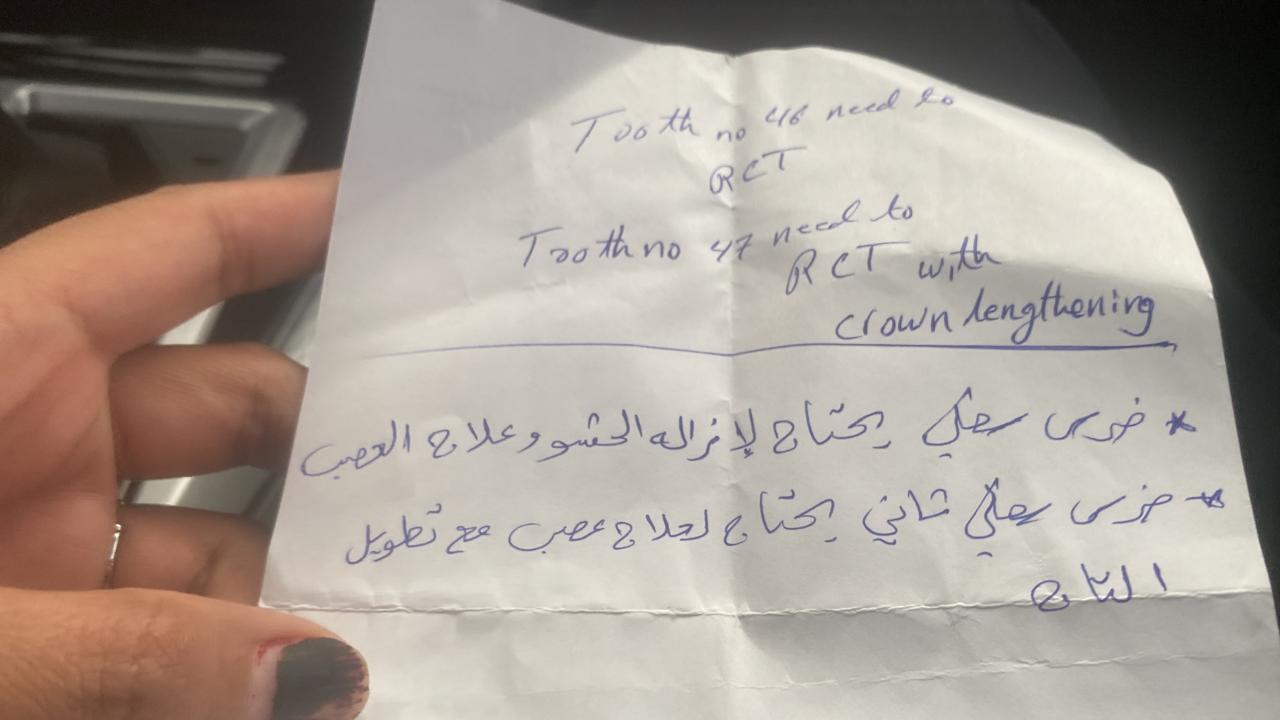 Tooth no 46 need to
RCT
Tooth no 47 need to
RCT with
crown lengthening
* ضرس سفلي يحتاج لإزاله الحشو وعلاج العصب
* ضرس سفلي ثاني يحتاج لعلاج عصب مع تطويل
التاج